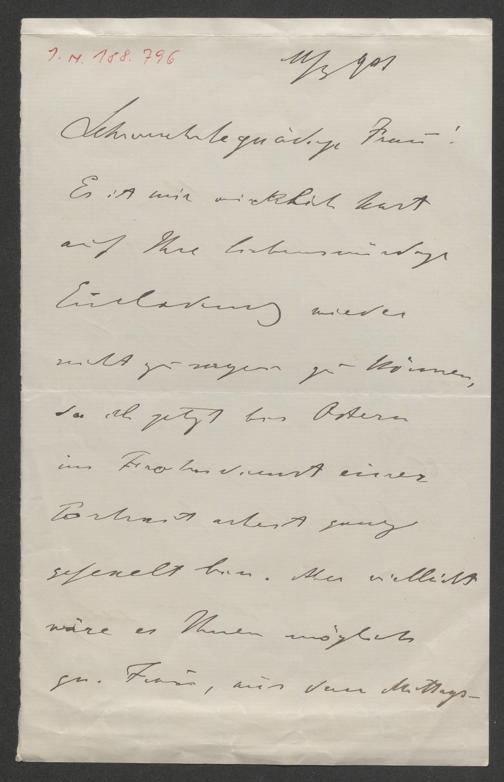 I. N. 188.796
11/3 901
Sehr verehrte gnädige Frau!
Es ist mir wirklich hart
auf Ihre liebenswürdige
Einladung wieder
nicht zu sagen zu können,
da ich jetzt bis Ostern
im Frohndienst einer
Portrait arbeit ganz
gefesselt bin. Aber vielleicht
wäre es Ihnen möglich
gn. Frau, aus dem Mittags-